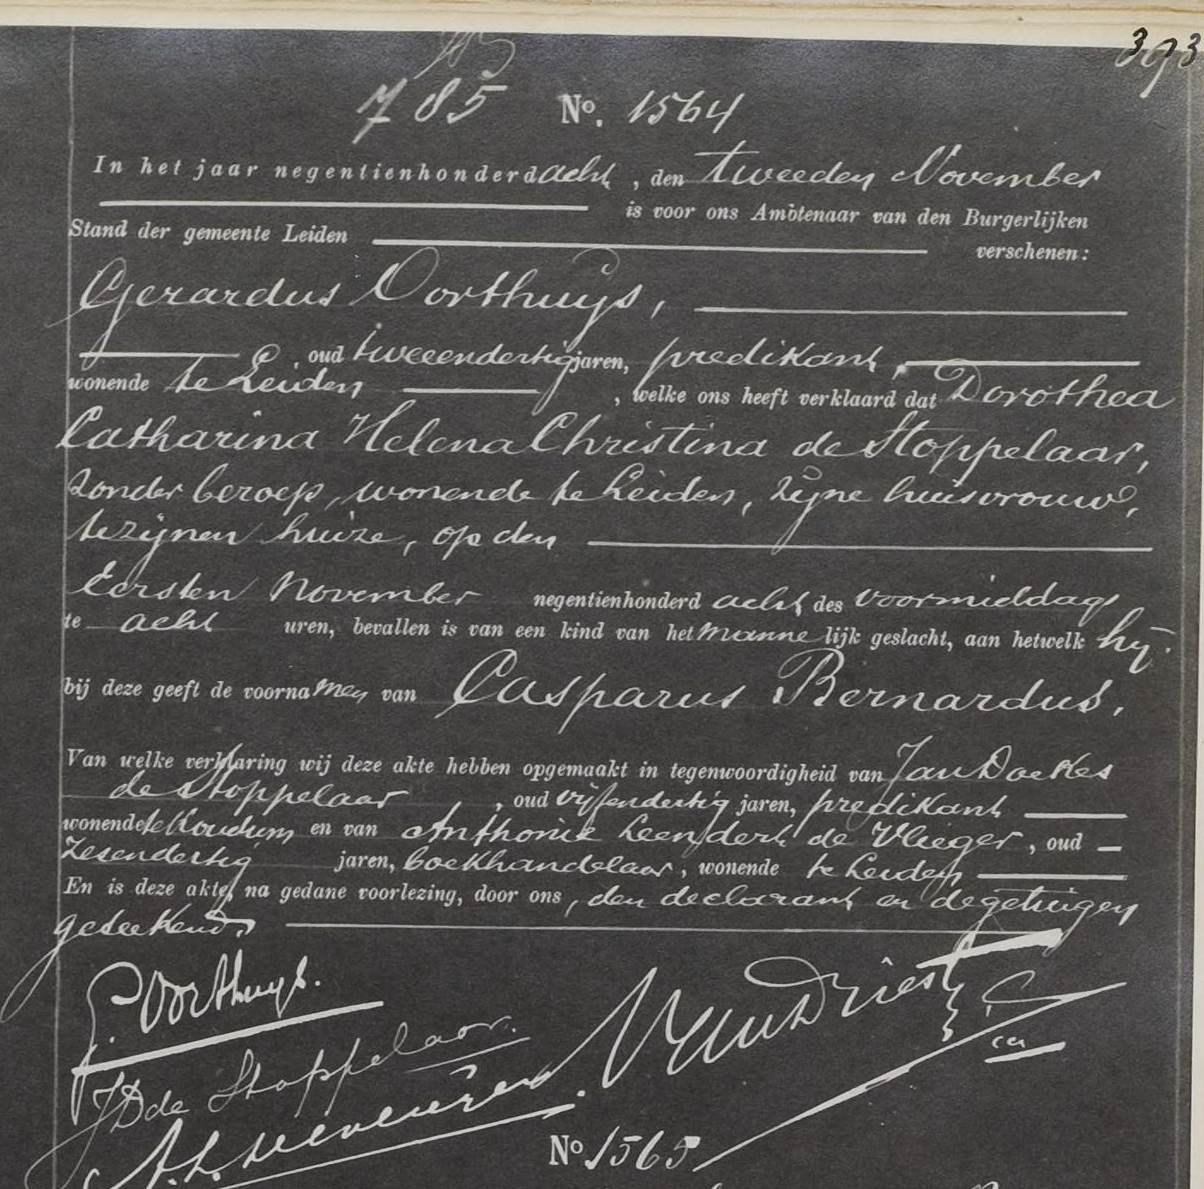 393
785 No. 1564
In het jaar negentienhonderd acht, den tweeden November
is voor ons Ambtenaar van den Burgerlijken
Stand der gemeente Leiden verschenen:
Gerardus Oorthuijs,
, oud tweeendertig jaren, predikant,
wonende te Leiden, welke ons heeft verklaard dat Dorothea
Catharina Helena Christina de Stoppelaar,
zonder beroep, wonende te Leiden, zijne huisvrouw,
te zijnen huize, op den
Eersten November negentienhonderd acht des voormiddags
te acht uren, bevallen is van een kind van het mannelijk geslacht, aan hetwelk hij
bij deze geeft de voornamen van Casparus Bernardus.
Van welke verklaring wij deze akte hebben opgemaakt in tegenwoordigheid van Jan Doekes
de Stoppelaar, oud vijfendertig jaren, predikant
wonende te Koudum en van Anthonie Leendert de Vlieger, oud
zesendertig jaren, boekhandelaar, wonende te Leiden
En is deze akte, na gedane voorlezing, door ons, den declarant en de getuigen
geteekend.
G. Oorthuys.
JD de Stoppelaar.
No 1565